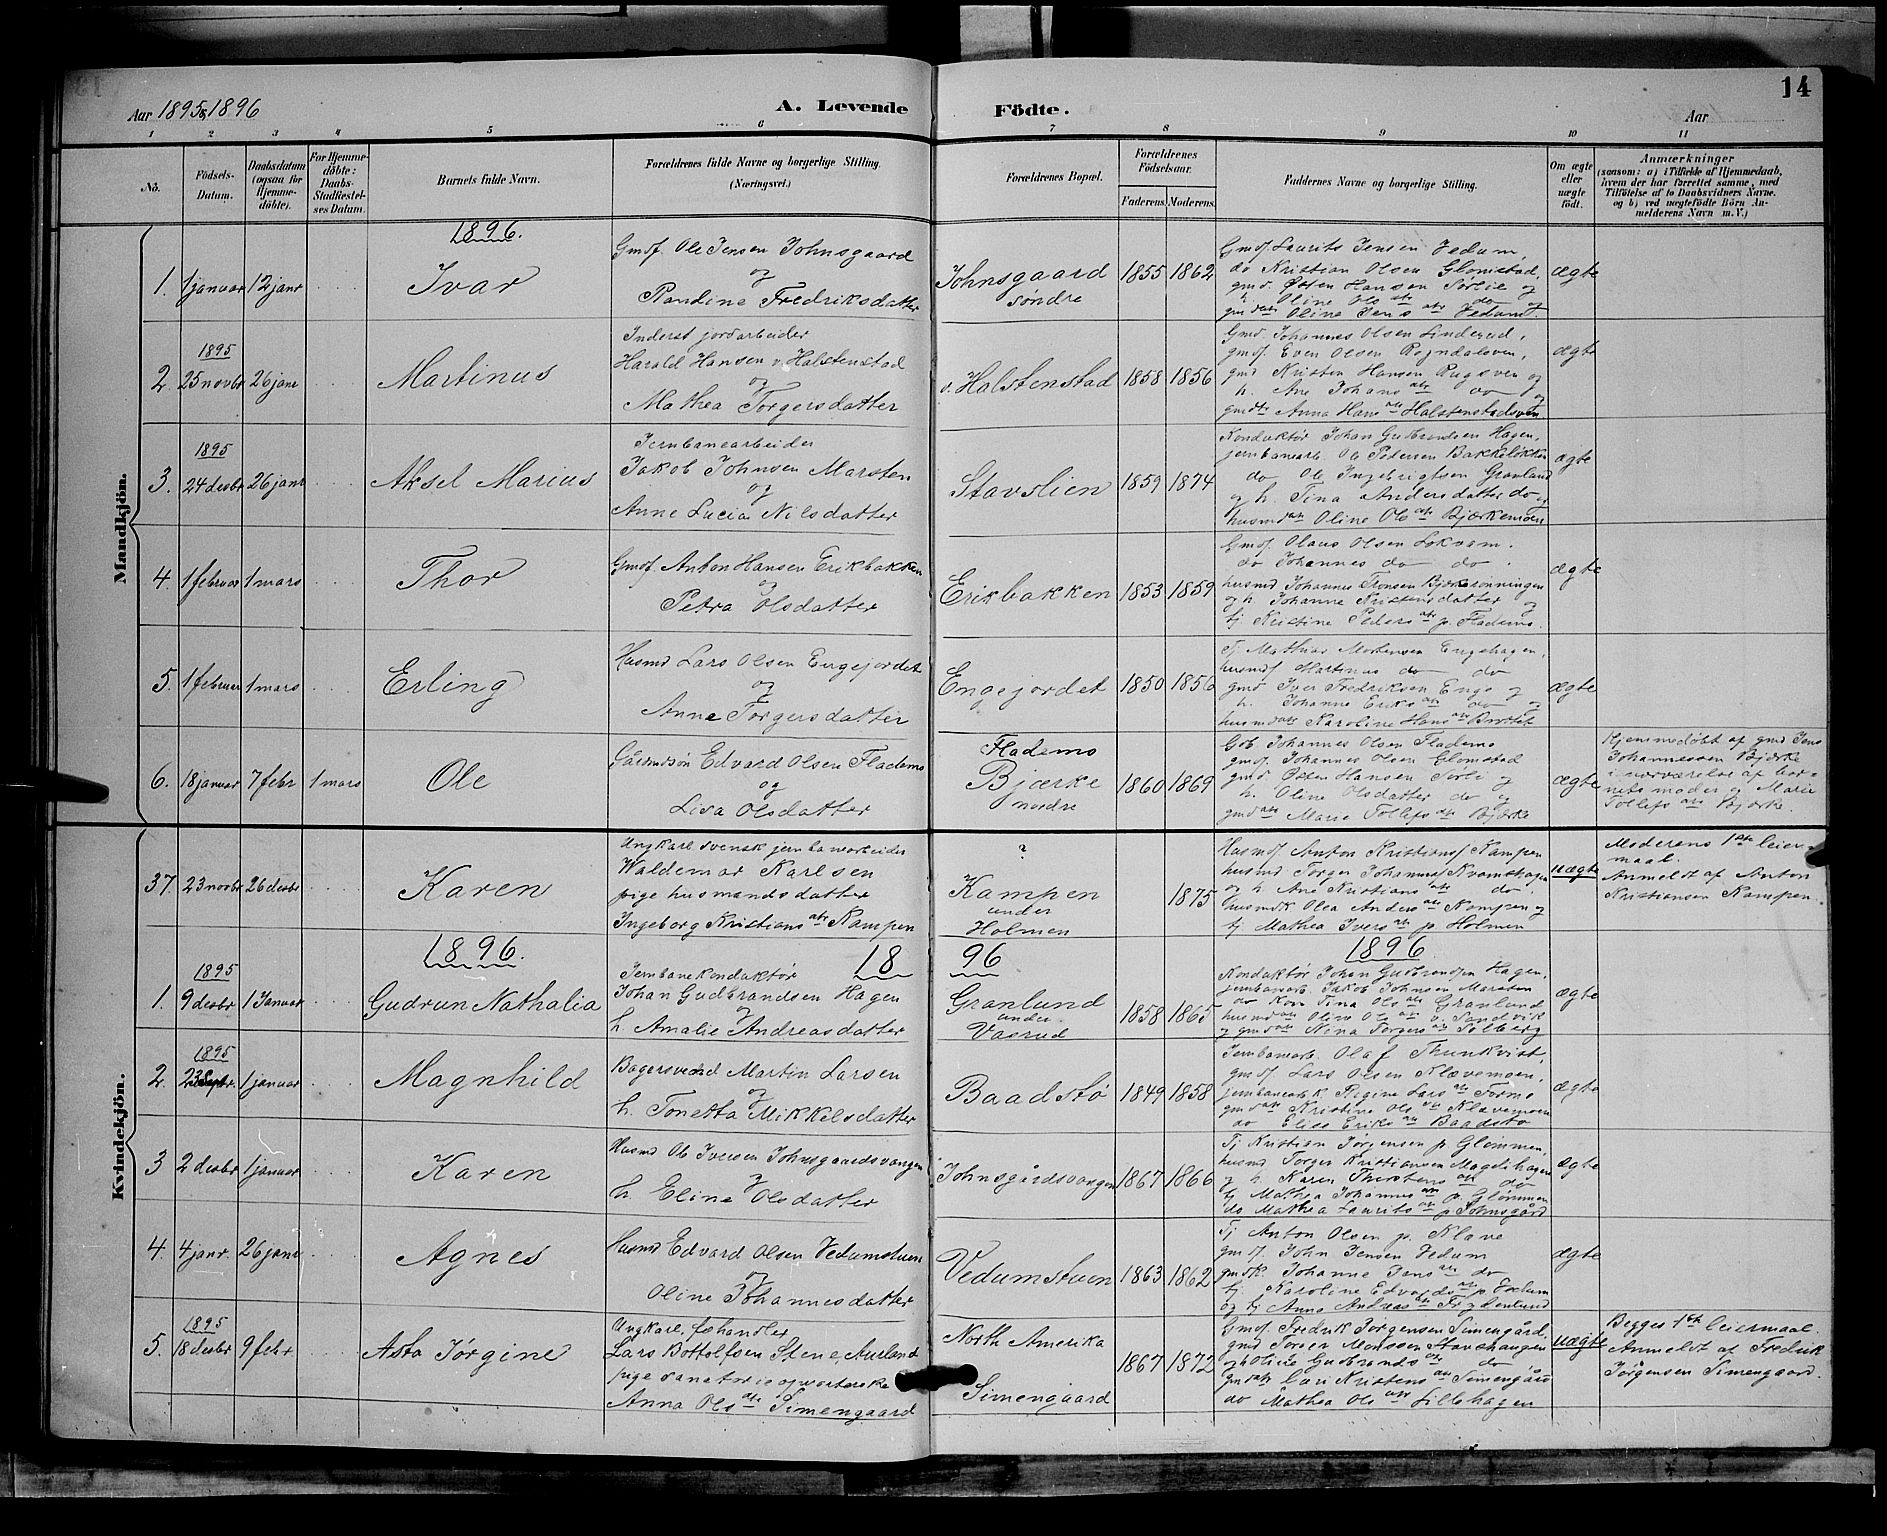 Aar 1895 & 1896
A. Levende Födte.
Aar
14
1 2 3 4 5 6 7 8 9 10 11
No.
Födsels-Datum.
Daabsdatum (ogsaa for Hjemme-döbte).
For Hjemme-döbte: Daabs-Stadfæstel-ses Datum.
Barnets fulde Navn.
Forældrenes fulde Navne og borgerlige Stilling.
(Næringsvei.)
Forældrenes Bopæl.
Forældrenes Födselsaar.
Faderens. Moderens.
Faddernes Navne og borgerlige Stilling.
Om ægte eller uægte födt.
Anmærkninger
(saasom: a) i Tilfælde af Hjemmedaab, hvem der har forrettet samme, med Tilföielse af to Daabsvidners Navne. og b) ved uægtefödte Börn An-melderens Navn m. V.)
Mandkjön.
1896.
1. 1 januar 12 janr Ivar
Gmdf. Ole Jensen Johnsgaard
og
Pandine Fredriksdatter
Johnsgaard
søndre
1855 1862
Gmdf. Laurits Jensen Vedum,
do Kristian Olsen Glomstad,
gmd. Østen Hansen Sørlie og
h. Oline Ols atr do og
gmdatr Oline Jens atr Vedum.
ægte
2. 1895 25 novbr 26 janr Martinus
Inderst jordarbeider
Harald Hansen v. Halstenstad
og
Mathea Torgersdatter
v. Halstenstad
1858 1856
Gmd. Johannes Olsen Linderud,
gmdf. Even Olsen
gmd Kristen Hansen Rugsven og
h. Ane Johans atr do og
gmdtr Anna Hans atr Halstenstadsven
ægte
3. 1895 24 desbr 26 janr Aksel Marius
Jernbanearbeider
Jakob Johnsen Marsten
og
Anne Lucia Nilsdatter
Stavslien
1859 1874
Konduktør Johan Gudbrandsen Hagen,
jernbanearb. Ole Petersen
do Ole Ingebrigtsen Granlund
og h. Tina Andersdatter do og
husmdatr Oline Ols atr Bjørkemoen
ægte
4. 1 februar 1 mars Thor
Gmdf. Anton Hansen Erikbakken
og
Petra Olsdatter
Erikbakken
1853 1859
Gmdf. Olaus Olsen Løkvam.
do Johannes do do.
husmd Johannes Tronsen Bjøkerønningen
og h. Johanne Kristensdatter og
tj. Kristine Peders atr p. Flademo.
ægte
5. 1 februar 1 mars Erling
Husmd Lars Olsen Engejordet
og
Anne Torgersdatter
Engejordet
1850 1856
Tj Mathias Mortensen Engehagen,
husmdf Martinus do do
gmd Iver Fredriksen Enge og
h. Johanne Eriks atr do og
husmdatr Karoline Hans atr
ægte
6. 18 januar 7 febr 1 mars Ole
Gårdmdsøn Edvard Olsen Flademo
og
Lisa Olsdatter
Flademo
Bjærke
nordre
1860 1869
Gbr. Johannes Olsen Flademo
gmdf. Johannes Olsen Glomstad
gmd. Østen Hansen Sørli og
h. Oline Olsdatter do og
gmdatr Marie Tollefs atr Bjørke
ægte
Hjemmedøbt af gmd Jens
Johannessen Bjørke
i nærværelse af bar-
nets moder og Marie
Tollefs atr Bjørke.
Kvindekjön.
37. 23 novbr 26 desbr Karen
Ungkarl svensk jernbanearbeider
Waldemar Karlsen
pige husmandsdatter
Ingeborg Kristians atr Kampen
?
Kampen
under
Holmen
1875
Husmdf. Anton Kristians. Kampen
husmd Torger Johannes. Kvamshagen
og h. Ane Kristians atr do.
husmdk Olea Anders atr Kampen og
tj. Mathea Ivers atr p. Holmen
uægte
Moderens 1ste leier-
maal.
Anmeldt af Anton
Kristiansen Kampen.
1896. 18 96 1896
1. 1895 9 desbr 1 Januar Gudrun Nathalia
Jernbanekonduktør
Johan Gudbrandsen Hagen
og
h. Amalie Andreasdatter
Granlund
under
Vasrud
1858 1865
Konduktør Johan Gudbrandsen Hagen,
jernbanearb. Jakob Johnsen Marsten
do Kone Tina Ols atr Granlund
husmdatr Oline Ols atr v. Sandvik
og gmdatr Nina Torgers atr Solberg
ægte
2. 1895 23 Septr. 1 januar Magnhild
Bagersvend Martin Larsen
og
h. Tonetta Mikkelsdatter
Baadstø
1849 1858
Jernbanearb. Olaf Thunkvist,
gmdf Lars Olsen Klævemoen,
jernbanearb.k Regine Lars atr Formo
gmdatr Kristine Ols atr Klævemoen
do Elise Eriks atr Baadstø
ægte
3 2 desbr 1 januar Karen
Husmd Ole Iversen Johnsgaardsvangen
og
h. Eline Olsdatter
Johnsgårdsvangen
1867 1866
Tj Kristian Jørgensen p. Glømmen,
husmd Torger Kristiansen Mageltshagen
og h. Karen Thorstens atr do
tj Mathea Johannes atr p. Glømmen
do Mathea Laurits atr p Johnsgård
ægte
4. 4 janr. 26 janr Agnes
Husmd Edvard Olsen Vedumstuen
og
Oline Johannesdatter
Vedumstuen
1863 1862
Tj Anton Olsen p. Klæve
gmdf. John Jensen Vedum
gmdk. Johanne Jens atr do
tj. Karoline Edvards atr p Vedum
og tj Anna Andreas atr Frydenlund
ægte
5. 1895 18 desbr 9 febr Asta Jørgine
Ungkarl, fehandler
Lars Bottolfsen Stene, Aurland
pige sanatorieopvarterske
Anna Ols atr Simengaard
North Amerika
Simengaard
1867 1872
Gmdf. Fredrik Jørgensen Simengård,
gmd Torger Monssen Stavshaugen
og h. Oline Gudbrands atr do
gmdatr Kari Kristens atr Simengård
do Mathea Ols atr Lillehagen
uægte
Begges 1ste leiermaal.
Anmeldt af Fredrik
Jørgensen Simengaard.